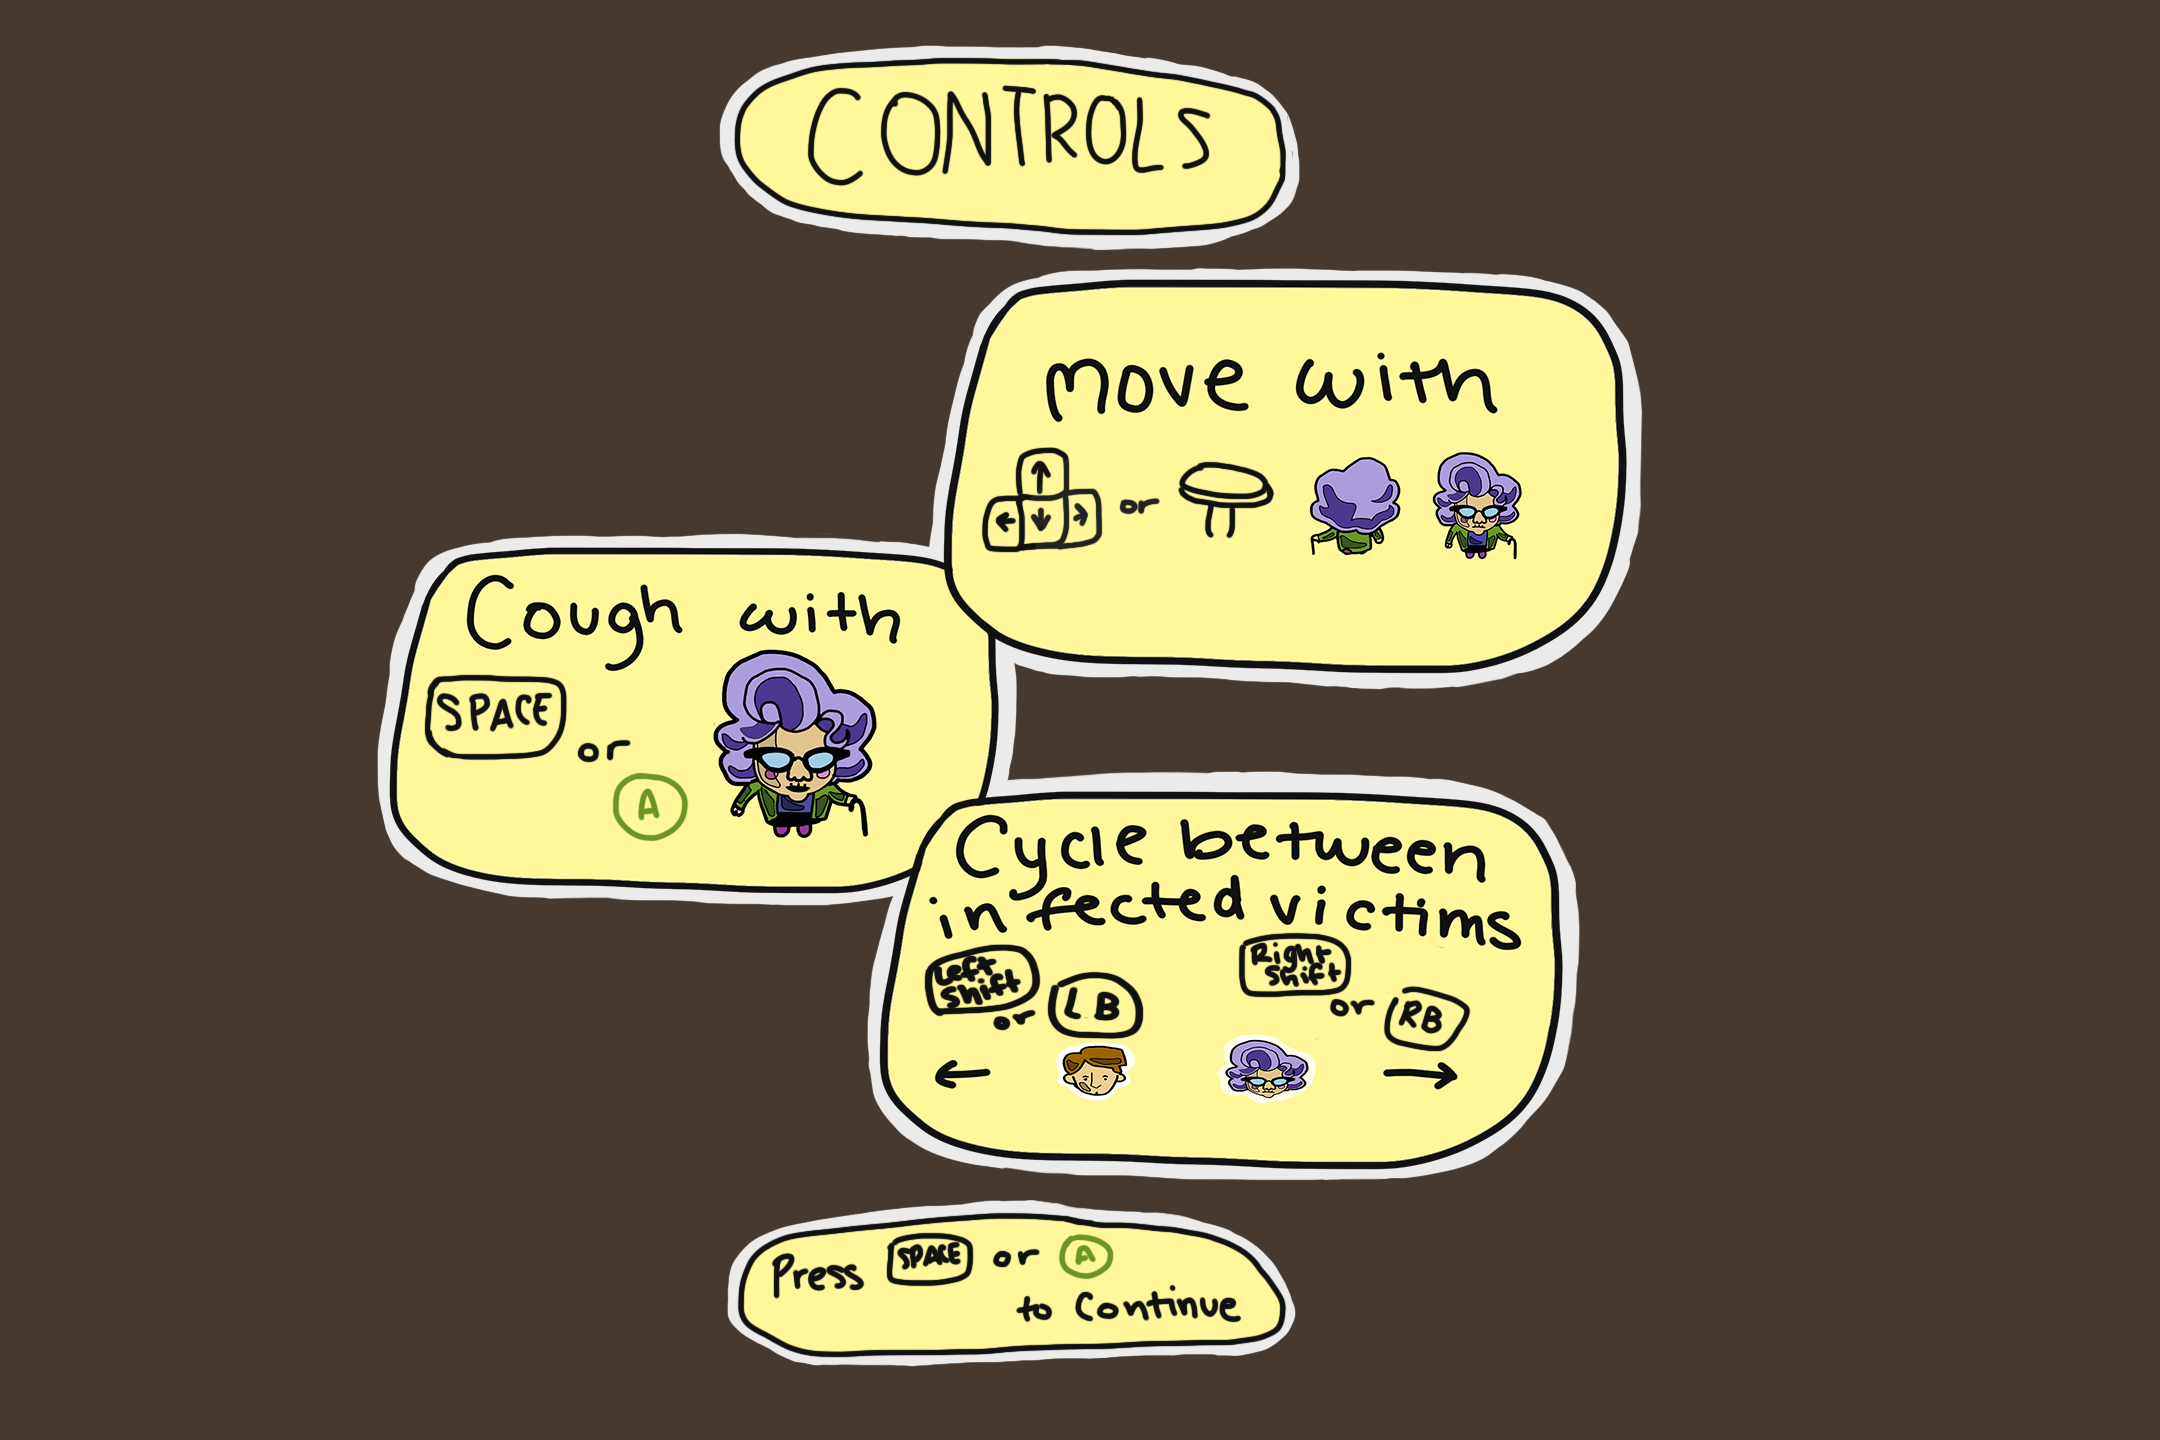 CONTROLS
move with
↑
← ↓ →
or
Cough with
SPACE
or
A
Cycle between
infected victims
Left
Shift
or
LB
Right
Shift
or
RB
← →
Press SPACE or A
to Continue